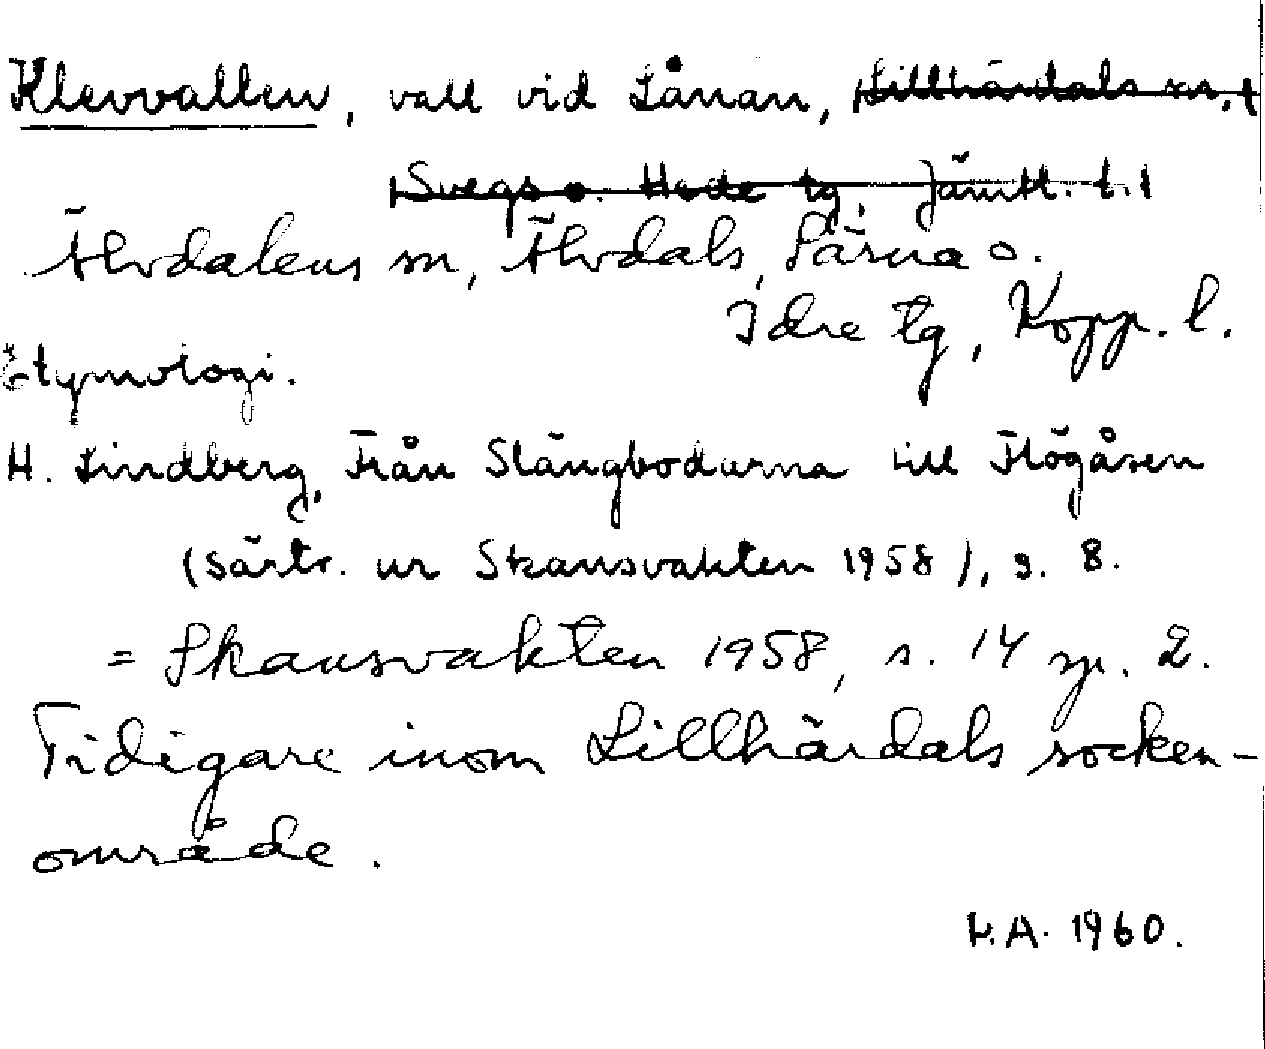 Klevvallen, vall vid Lånan, Lillhärdals sn,
Svegs o. Hede tg, Jämtl. l.
Älvdalens sn, Älvdals, Särna o.
Idre tg, Kopp. l.
Etymologi.
H. Lindberg, Från Slängbodarna till Flögåsen
(särtr. ur Skansvakten 1958), s. 8.
= Skansvakten 1958, s. 14 sp. 2.
Tidigare inom Lillhärdals socken-
område.
H.A. 1960.